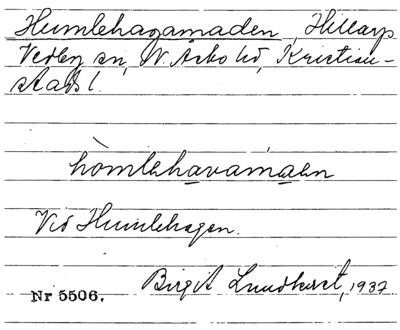 Humlehagamaden, Hillarps
Vedby sn, N. Åsbo hd, Kristian-
stads l.
hòmlehavamaen
Vid Humlehagen.
Birgit Lundkvist, 1937
Nr 5506.